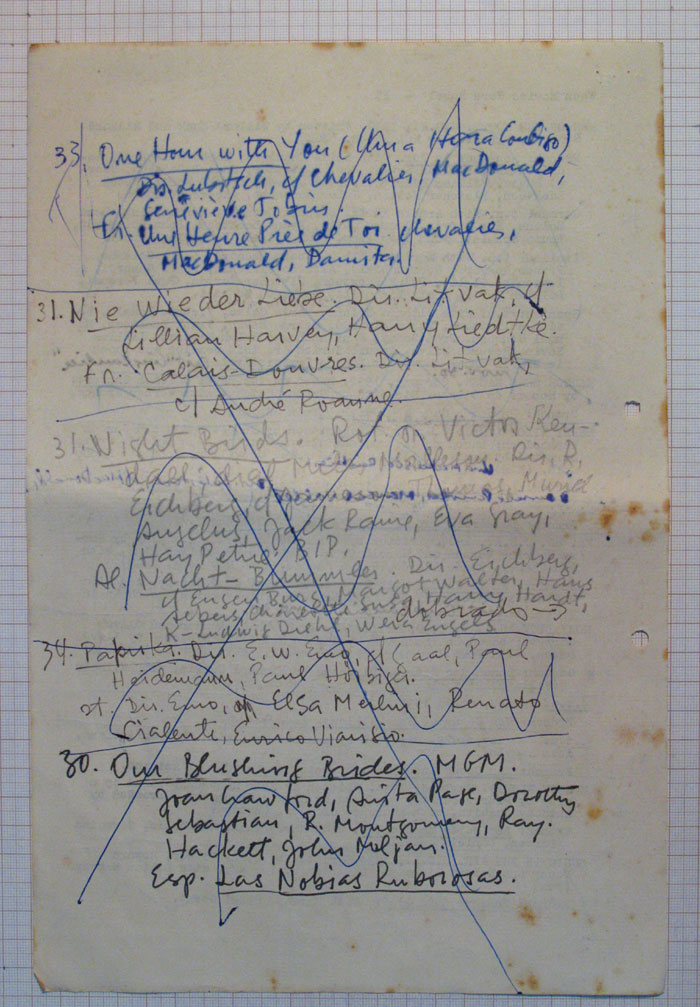 33. One Hour with You (Una Hora Contigo)
Dir. Lubitsch, c/ Chevalier, MacDonald,
Geneviève Tobin
Fr. Une Heure Près de Toi. Chevalier,
MacDonald, Damita.
31. Nie Wieder Liebe. Dir. Litvak, c/
Lillian Harvey, Harry Liedtke.
Fr. Calais-Douvres. Dir. Litvak,
c/ André Roanne.
31. Night Birds. Victor Ken-
dall Dir. R.
Eichberg, c/ Muriel
Angelus, Jack Raine, Eva Gray,
Hay Petrie. BIP.
Al. Nacht-Bummler. Dir. Eichberg,
c/ Eugen Burg, Margot Walter, Hans
Albers, Charlotte Susa, Harry Hardt,
K-Ludwig Diehl, Wera Engels
doblado →
34. Paprika. Dir. E. W. Emo, c/ F. Gaal, Paul
Heidemann, Paul Hörbiger.
It. Dir. Emo, c/ Elsa Merlini, Renato
Cialente, Enrico Viarisio.
30. Our Blushing Brides. MGM.
Joan Crawford, Anita Page, Dorothy
Sebastian, R. Montgomery, Ray.
Hackett, John Miljan.
Esp. Las Nobias Ruborosas.